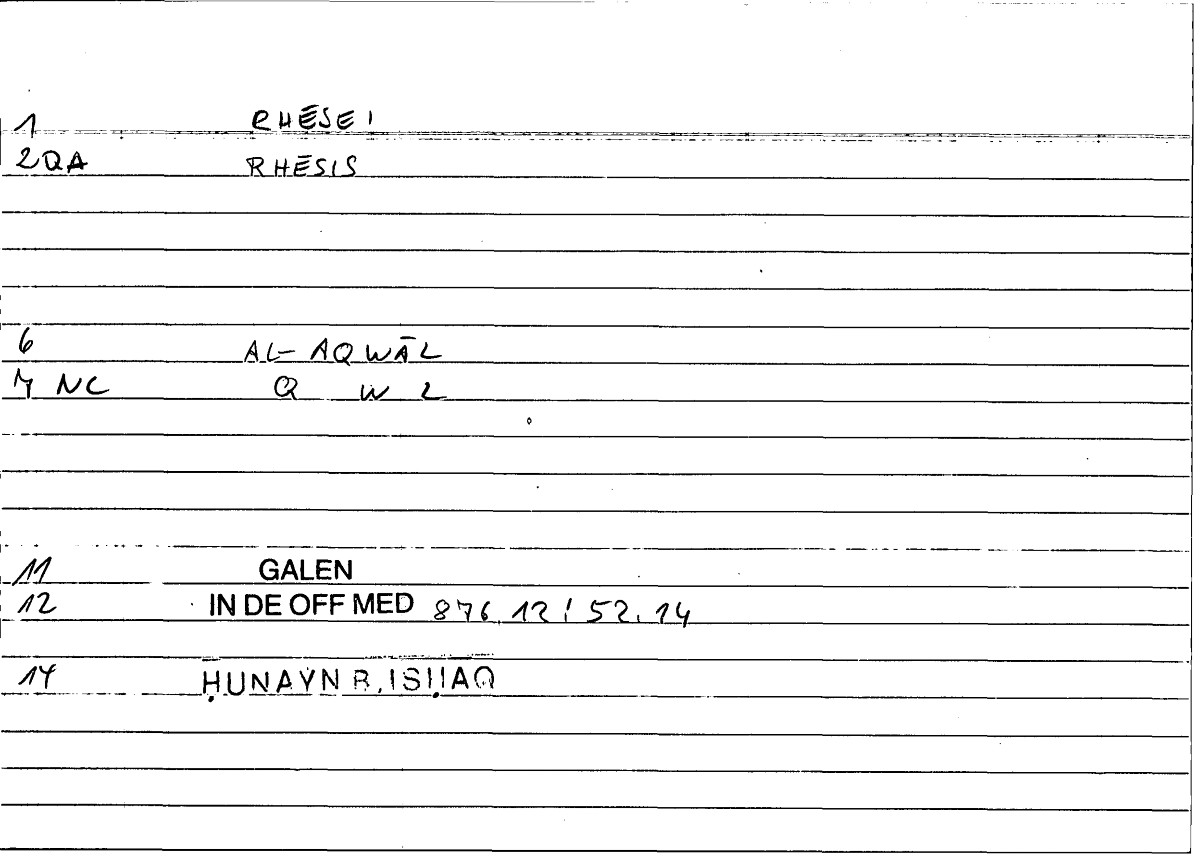 1 RHĒSEI
2QA RHĒSIS
6 AL-AQWĀL
7 NC Q W L
11 GALEN
12 IN DE OFF MED 876.12 / 52.14
14 ḤUNAYN B. ISḤĀQ